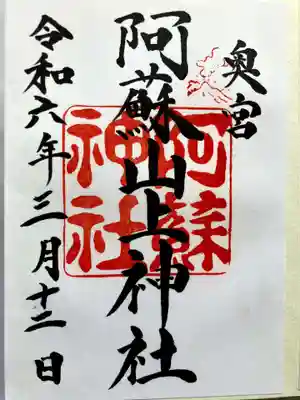 奥宮
阿蘇山上神社
令和六年三月十二日
阿蘇
神社